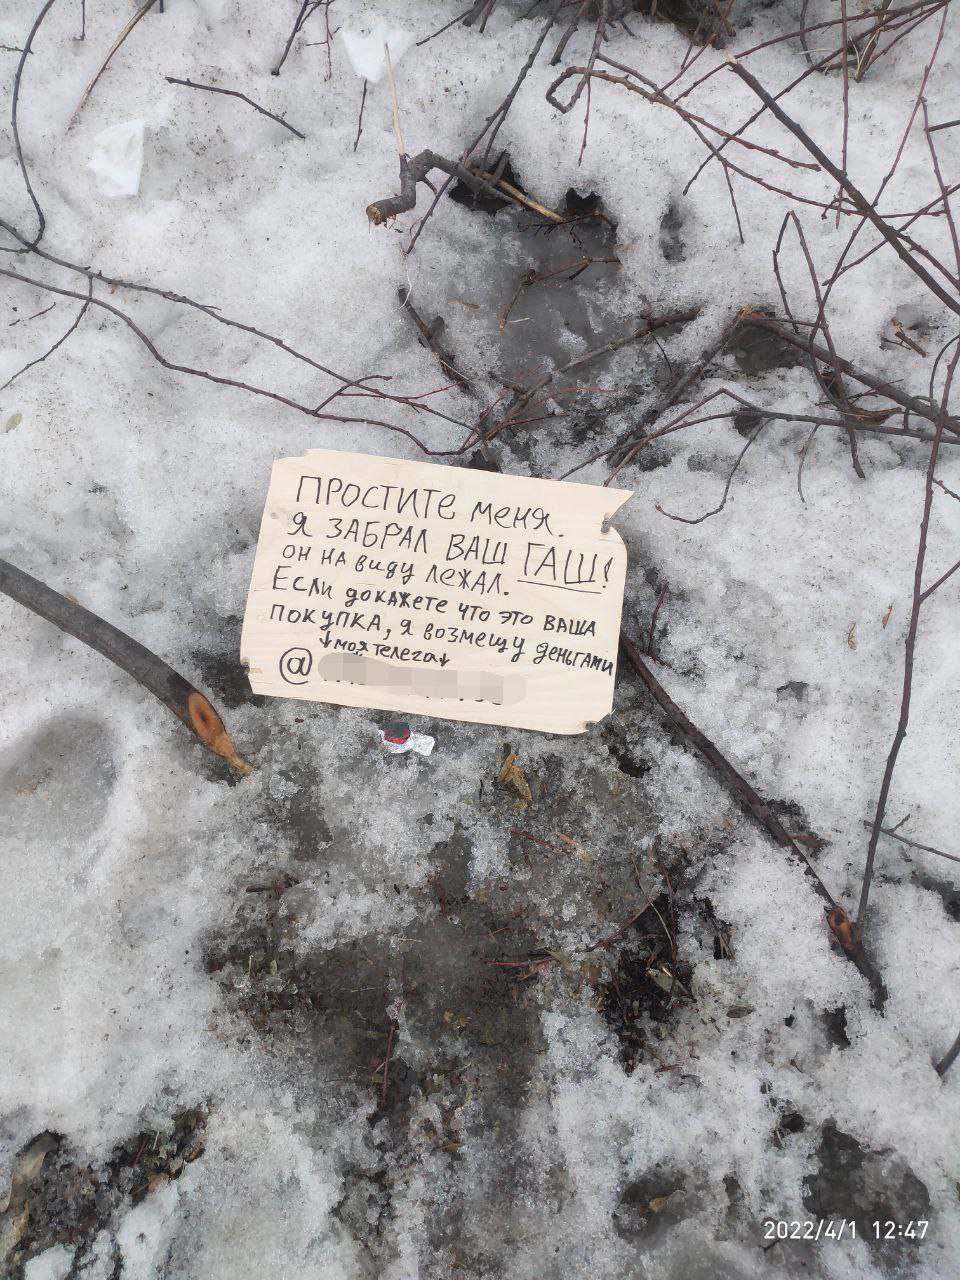 ПРОСТИТЕ меня.
Я ЗАБРАЛ ВАШ ГАШ!
ОН НА виду ЛЕЖАЛ.
Если докажете что это ВАША
ПОКУПКА, я возмещу деньгами
↓моя телега↓
@
2022/4/1 12:47